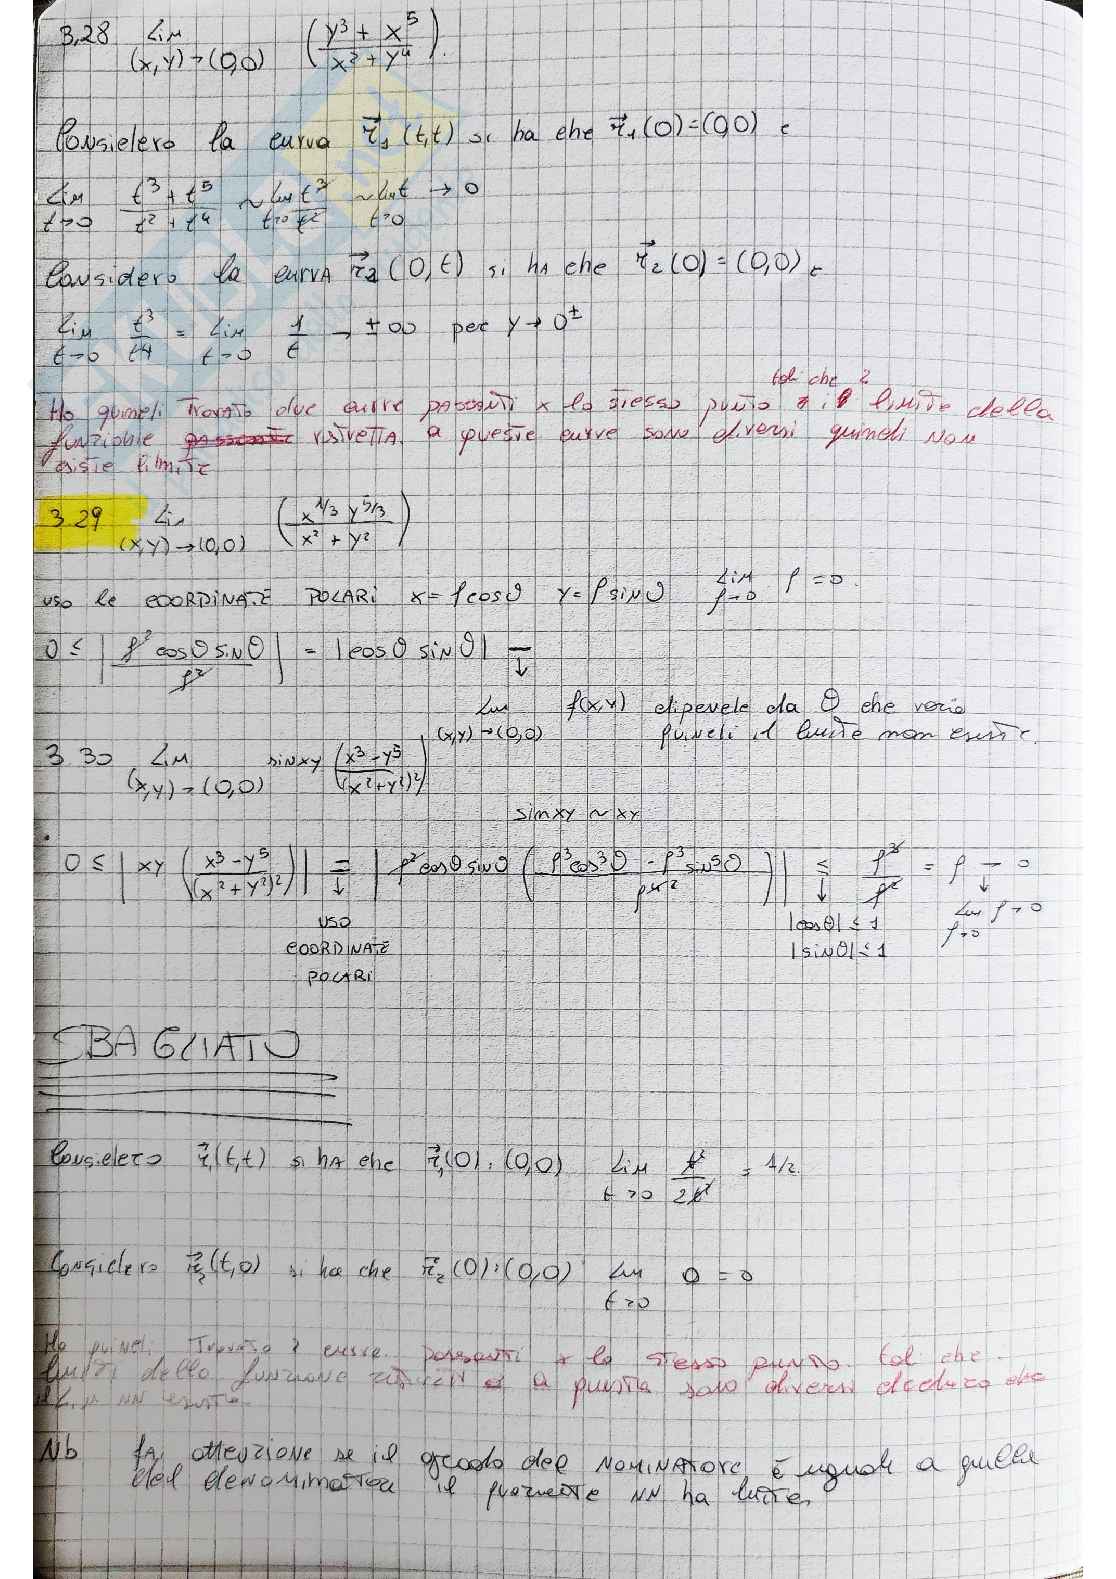 3.28 lim (x,y)→(0,0) ( y³ + x⁵ / x² + y⁴ ).
Considero la curva r⃗₁ (t,t) si ha che r⃗₁(0)=(0,0) e
lim t→0 t³ + t⁵ / t² + t⁴ ~ lim t→0 t³/t² ~ lim t→0 t → 0
Considero la curva r⃗₂ (0,t) si ha che r⃗₂(0) = (0,0) e
lim t→0 t³/t⁴ = lim t→0 1/t → ±∞ per y → 0±
tali che i
Ho quindi trovato due curve passanti x lo stesso punto limite della
funzione ristretta a queste curve sono diversi quindi non
esiste limite
3.29 lim (x,y)→(0,0) ( x^1/3 y^5/3 / x² + y² )
uso le COORDINATE POLARI x = ρcosθ y = ρsinθ lim ρ→0 ρ = 0.
0 ≤ | ρ² cosθ sinθ / ρ² | = |cosθ sinθ| →
lim (x,y)→(0,0) f(x,y) dipende da θ che varia
quindi il limite non esiste.
3.30 lim (x,y)→(0,0) sinxy ( x³ − y⁵ / (x² + y²)² )
sinxy ~ xy
0 ≤ | xy ( x³ − y⁵ / (x² + y²)² ) | = | ρ²cosθ sinθ ( ρ³cos³θ − ρ³sin⁵θ / ρ⁴ ² ) | ≤ ρ³/ρ² = ρ → 0
USO COORDINATE POLARI
|cosθ| ≤ 1
|sinθ| ≤ 1
lim ρ→0 ρ → 0
SBAGLIATO
Considero r⃗₁(t,t) si ha che r⃗₁(0):(0,0) lim t→0 t²/2t² = 1/2.
Considero r⃗₂(t,0) si ha che r⃗₂(0):(0,0) lim t→0 0 = 0
Ho quindi trovato 2 curve passanti x lo stesso punto tal che
limiti della funzione a questa sono diversi deduco che
il lim nn esiste.
Nb fai attenzione se il grado del NOMINATORE è uguale a quella
del denominatore il quoziente NN ha limite.